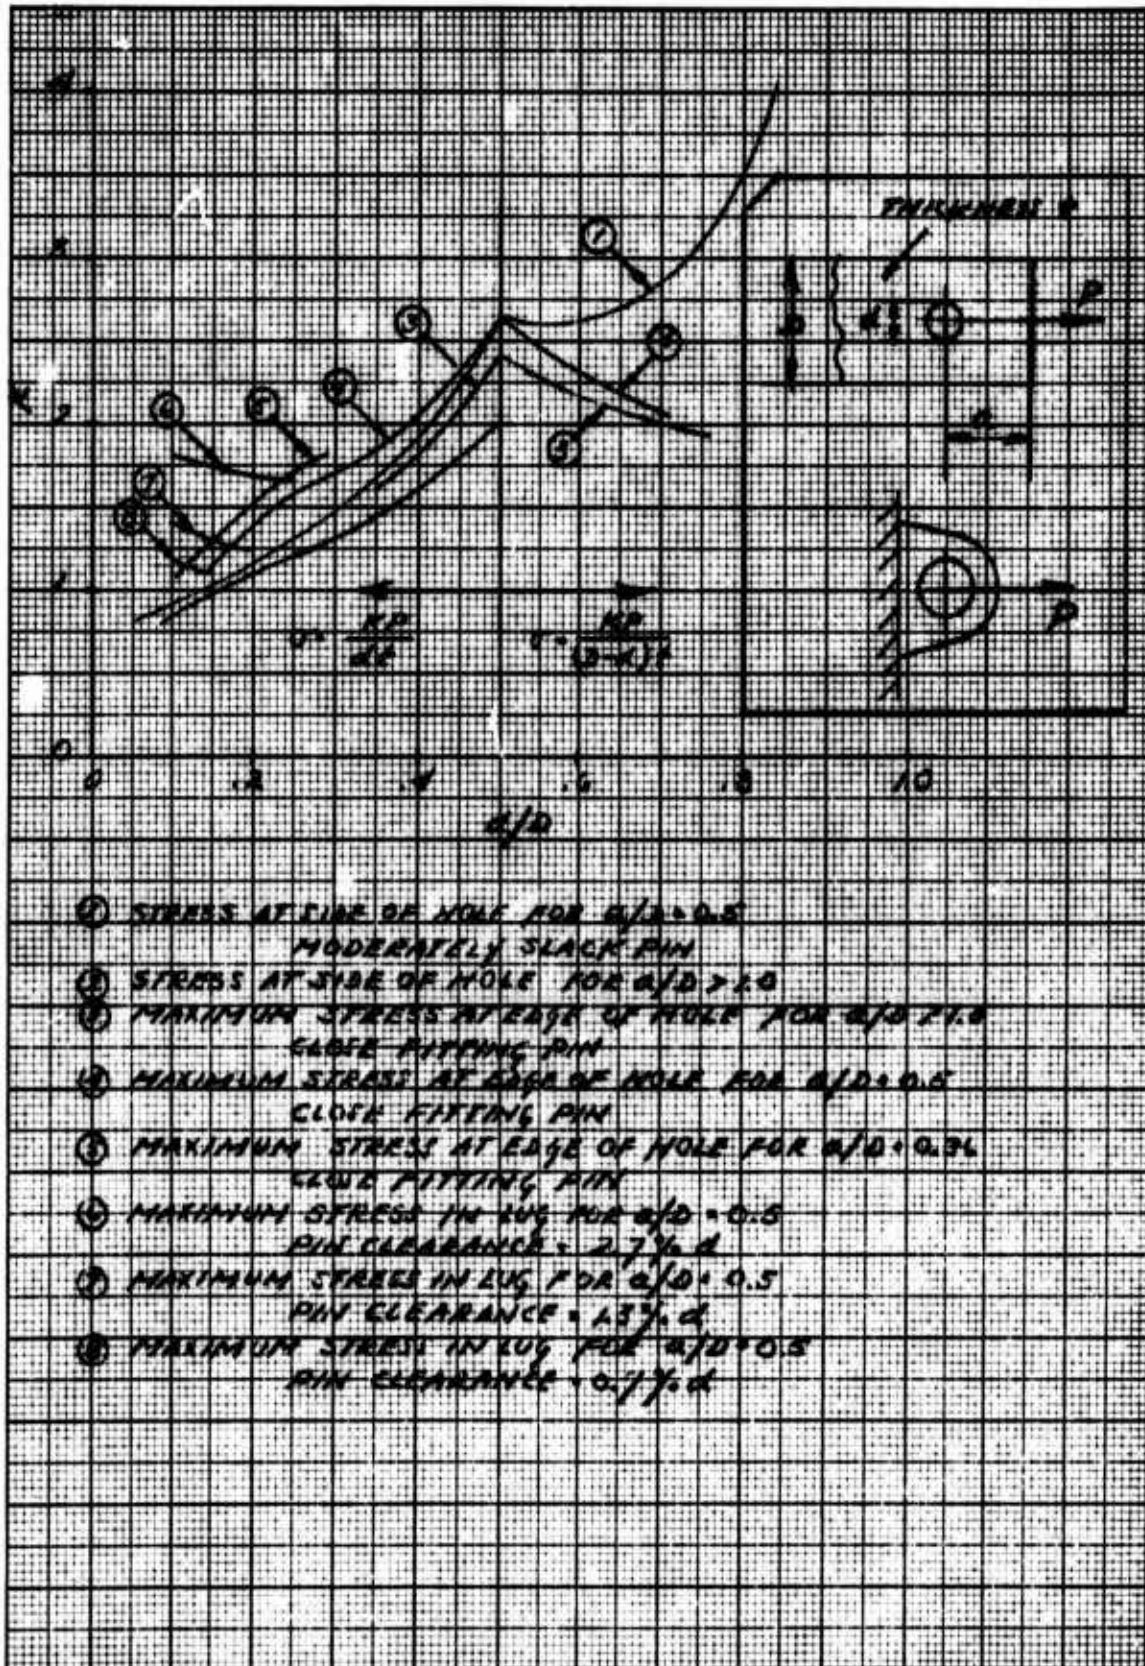 4
THICKNESS t
3
①
P
D
d
③
④
K
2
④
⑤
⑥
a
⑤
⑦
⑧
1
P
σ = KP/dt
σ = KP/(D-d)t
0
0 .2 .4 .6 .8 1.0
d/D
① STRESS AT SIDE OF HOLE FOR a/D = 0.5
MODERATELY SLACK PIN
STRESS AT SIDE OF HOLE FOR a/D > 1.0
MAXIMUM STRESS AT EDGE OF HOLE FOR a/D
CLOSE FITTING PIN
④ MAXIMUM STRESS AT EDGE OF HOLE FOR a/D = 0.5
CLOSE FITTING PIN
⑤ MAXIMUM STRESS AT EDGE OF HOLE FOR a/D =
CLOSE FITTING PIN
⑥ MAXIMUM STRESS IN LUG FOR a/D = 0.5
PIN CLEARANCE = 2.7% d
⑦ MAXIMUM STRESS IN LUG FOR a/D = 0.5
PIN CLEARANCE = 1.3% d
⑧ MAXIMUM STRESS IN LUG FOR a/D = 0.5
PIN CLEARANCE = 0.7% d